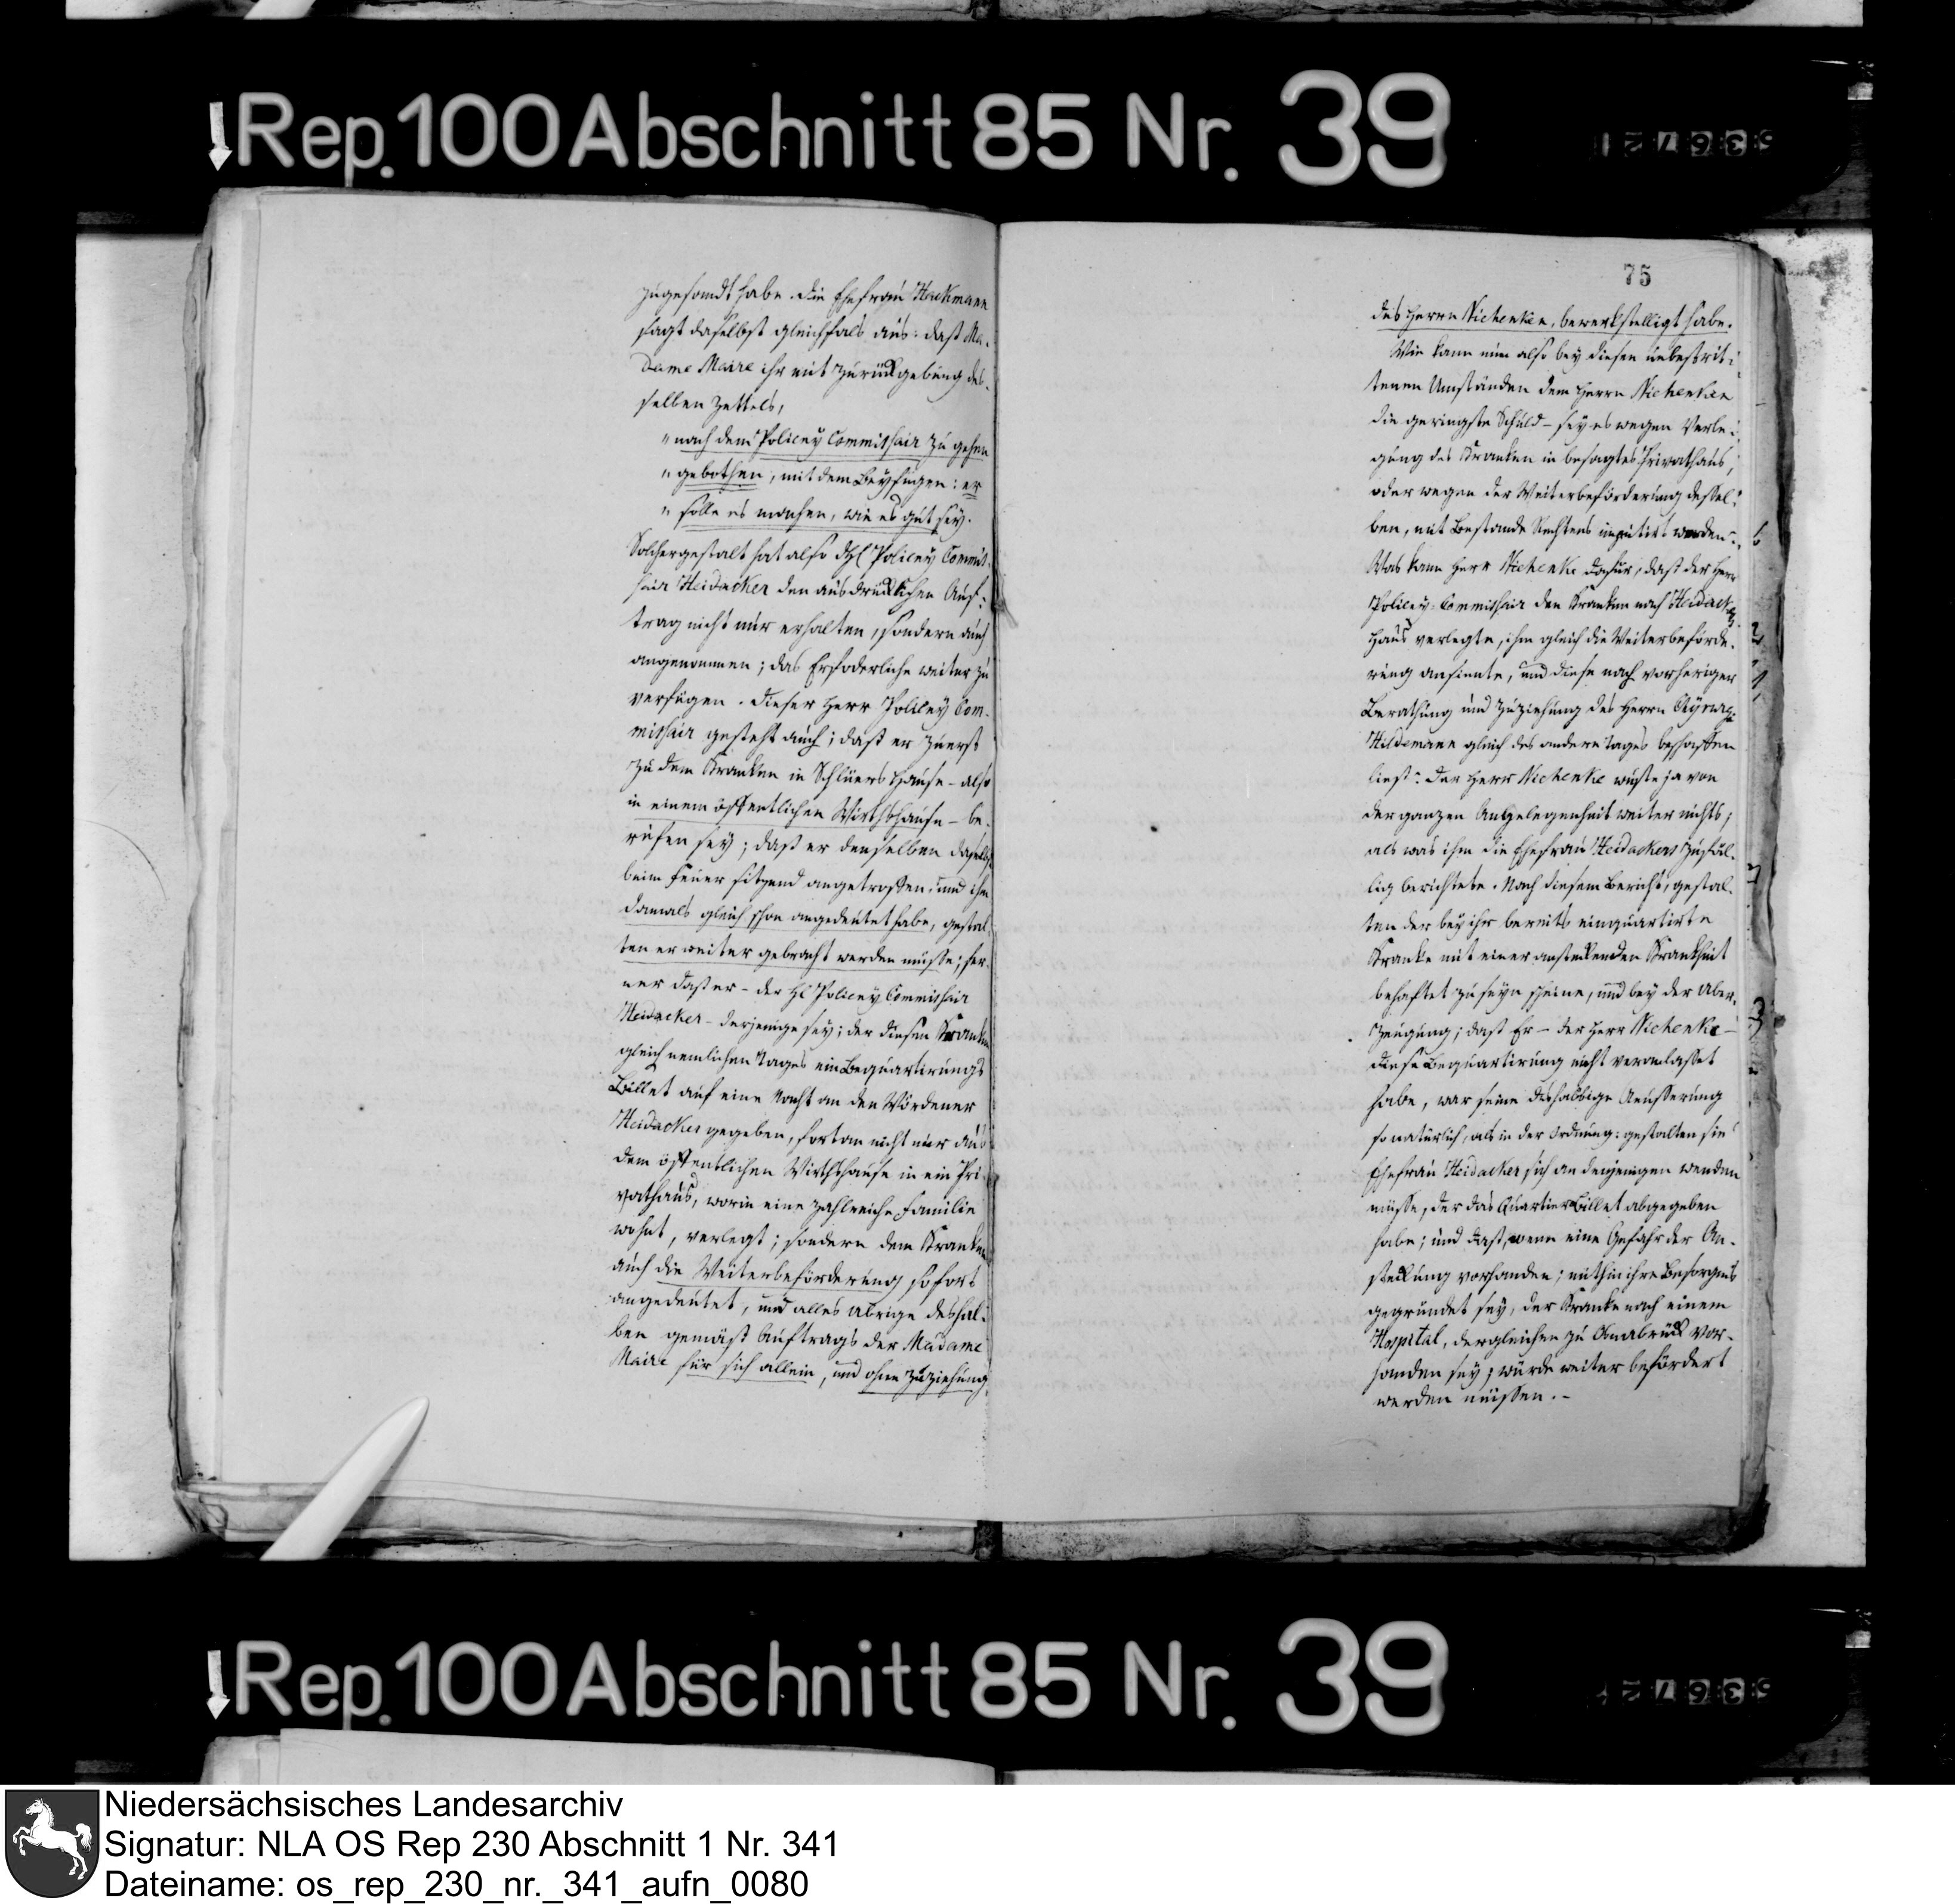 Rep. 100 Abschnitt 85 Nr. 39
zugesandt habe. Die Ehefrau Hackmann
sagt daselbst gleichfals aus: daß Ma-
dame Maire ihr mit Zurückgebung des-
selben Zettels,
" nach dem Policey Commissair zu gehen
" gebothen, mit dem Beyfügen: er
" solle es machen, wie es gut sey.
Solchergestalt hat also Policey Commis-
sair Heidacker den ausdrücklichen Auf-
trag nicht nur erhalten, sondern auch
angenommen; das Erfoderliche weiter zu
verfügen. Dieser Herr Policey Com-
missair gesteht auch; daß er zuerst
zu dem Kranken in Schlüers Hause - also
in einem öffentlichen Wirthshause - be-
rufen sey; daß er denselben daselbst
beim Feuer sitzend angetroffen und ihm
damals gleich schon angedeutet habe, gestal-
ten er weiter gebracht werden müsse; fer-
ner daß er - der Hl Policey Commissair
Heidacker - derjenige sey; der diesen Kranken
gleich nemlichen Tages ein Bequartirungs
Billet auf eine Nacht an den Vördener
Heidacker gegeben, fortan nicht nur aus
dem öffentlichen Wirthshause in ein Pri-
vathaus, worin eine zahlreiche Familie
wohnt, verlegt; sondern dem Kranken
auch die Weiterbeförderung sofort
angedeutet, und alles übrige deshal-
ben gemäß Auftrags der Madame
Maire für sich allein, und ohne Zuziehung
75
des Herrn Nichenke, bewerkstelligt habe.
Wie kann nun also bey diesen unbestrit-
tenen Umständen dem Herrn Nichenke
die geringste Schuld - sey es wegen Verle-
gung des Kranken in besagtes Privathaus,
oder wegen der Weiterbeförderung dessel-
ben, mit Bestande Rechtens imputirt werden
Was kann Herr Nichenke dafür, daß der Herr
Policey-Commissair den Kranken nach Heidackers
Haus verlegte, ihm gleich die Weiterbeförde-
rung ansinnte, und diese nach vorheriger
Berathung und Zuziehung des Herrn
Hildemann gleich des andern Tages beschaffen
ließ. Der Herr Nichenke wuste ja von
der ganzen Angelegenheit weiter nichts,
als was ihm die Ehefrau Heidackers zufäl-
lig berichtete. Nach diesem Bericht, gestal-
ten der bey ihr bereits einquartirte
Kranke mit einer ansteckenden Krankheit
behaftet zu seyn scheine, und bey der Über-
zeugung; daß Er - der Herr Nichenke -
diese Bequartirung nicht veranlasset
habe, war seine deshalbige Aeusserung
so natürlich, als in der Ordnung: gestalten sie
Ehefrau Heidacker sich an denjenigen wenden
müsse, der das Quartier Billet abgegeben
habe; und daß, wenn eine Gefahr der An-
steckung vorhanden; mithin ihre Besorgnis
gegründet sey, der Kranke nach einem
Hospital, dergleichen zu Osnabrück vor-
handen sey, würde weiter befördert
werden müssen. -
Rep. 100 Abschnitt 85 Nr. 39
Niedersächsisches Landesarchiv
Signatur: NLA OS Rep 230 Abschnitt 1 Nr. 341
Dateiname: os_rep_230_nr._341_aufn_0080